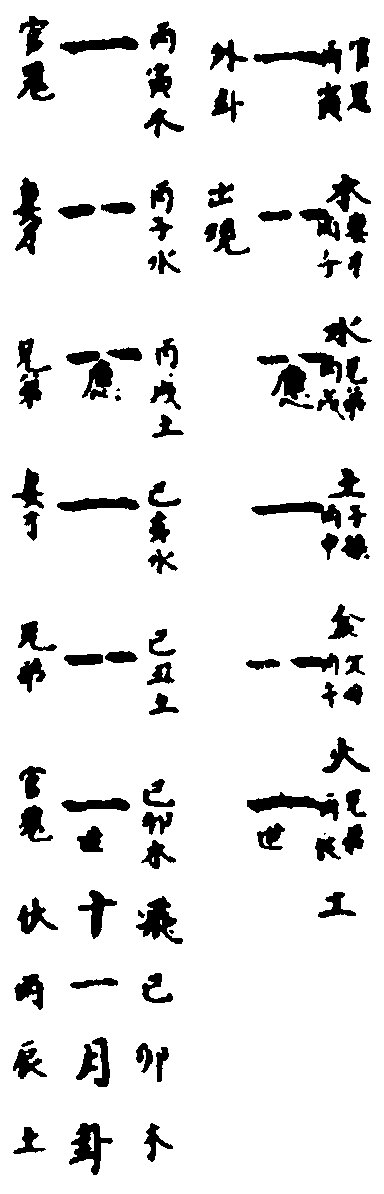 官鬼
丙寅木
妻才
丙子水
兄弟
丙戌土
應
子孫
丙申金
父母
丙午火
兄弟
丙辰土
世
外卦
出現
丙寅木
官鬼
丙子水
妻才
丙戌土
應
兄弟
己亥水
妻才
己丑土
兄弟
己卯木
世
官鬼
飛己卯木
十一月卦
伏丙辰土